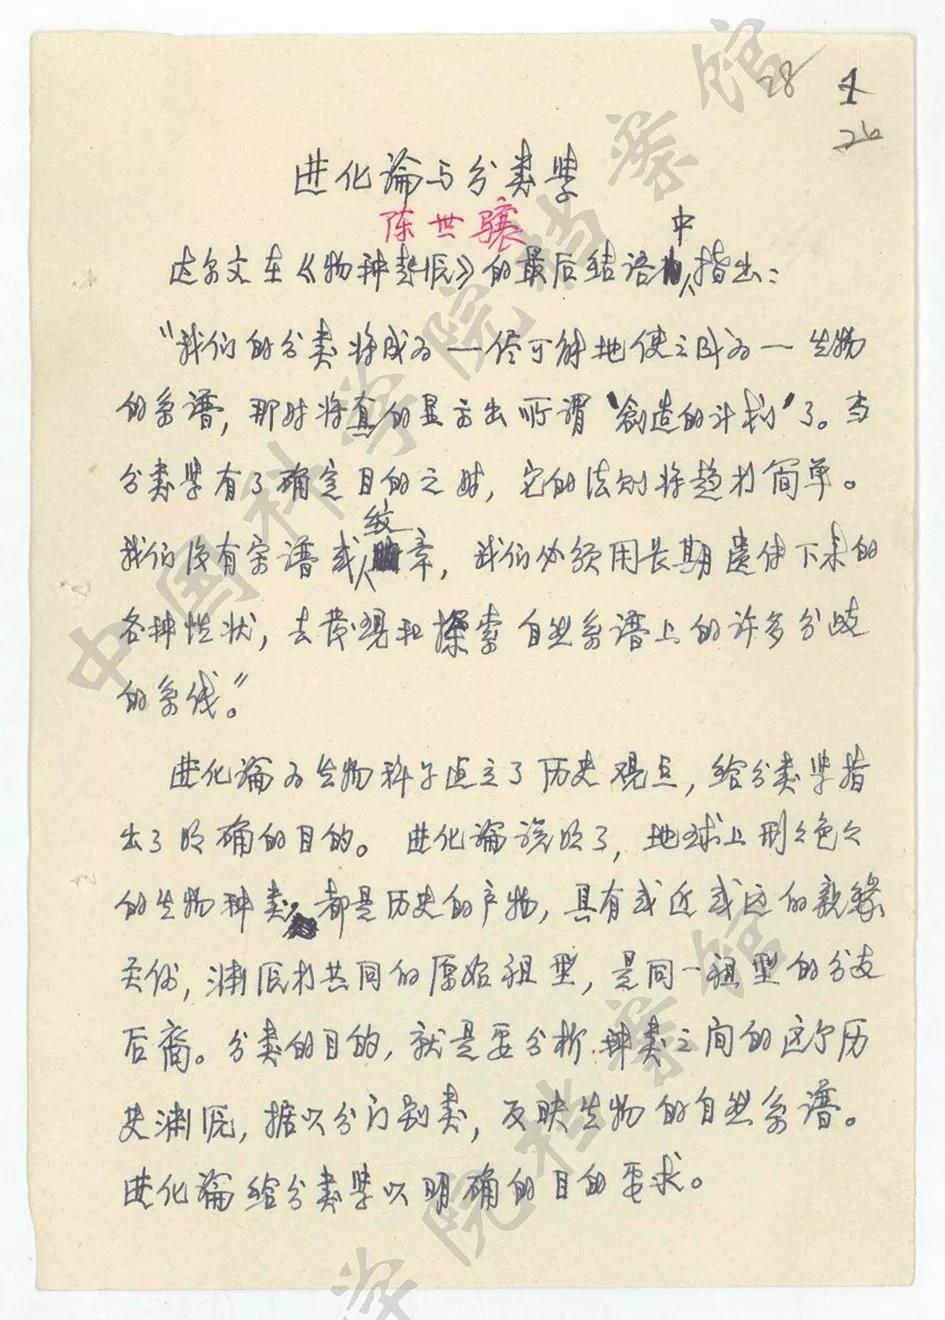 28 1
26
进化论与分类学
陈世骧
达尔文在《物种起源》的最后结语中指出：
“我们的分类将成为一尽可能地使之成为一生物
的系谱，那时将真的显示出所谓“创造的计划”了。当
分类学有了确定目的之时，它的法则将趋于简单。
我们没有宗谱或纹章，我们必须用长期遗传下来的
各种性状，去发现和探索自然系谱上的许多分歧
的系线。”
进化论为生物科学建立了历史观点，给分类学指
出了明确的目的。进化论说明了，地球上形形色色
的生物种类，都是历史的产物，具有或近或远的亲缘
关系，渊源于共同的原始祖型，是同一祖型的分支
后裔。分类的目的，就是要分析种类之间的这个历
史渊源，据以分门别类，反映生物的自然系谱。
进化论给分类学以明确的目的要求。
中国科学院档案馆
学院档案馆